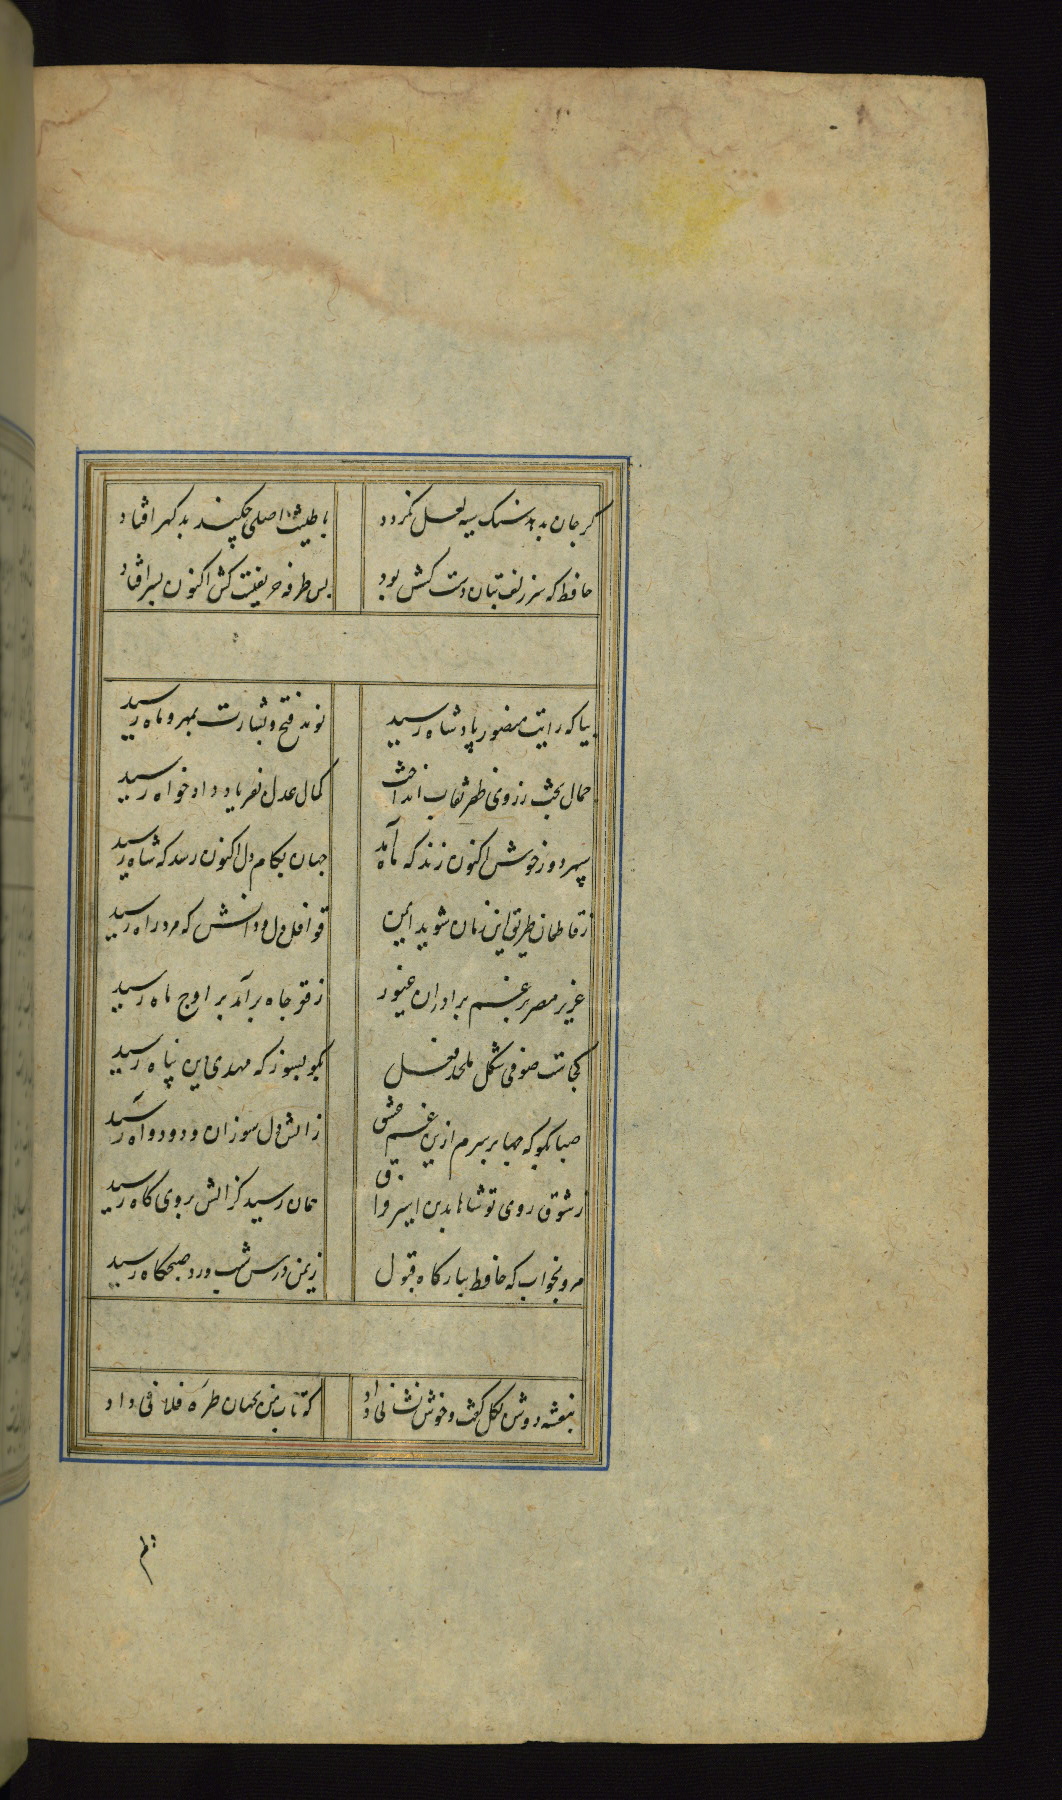 کر جان بدهد سنک سیه لعل نکردد با طینت اصلی چکند بد کهر افتاد
حافظ که سر زلف بتان دست کشش بود بس طرفه حریفیست کش اکنون بسر افتاد
بیا که رایت منصور پادشاه رسید نوید فتح و بشارت بمهر و ماه رسید
جمال بخت ز روی ظفر نقاب انداخت کمال عدل بفریاد داد خواه رسید
سپهر دور خوش اکنون زند که ماه آمد جهان بکام دل اکنون رسد که شاه رسید
ز قاطعان طریق این زمان شوید ایمن قوافل دل و دانش که مرد راه رسید
عزیز مصر برغم برادران غیور ز قعر چاه برآمد بر اوج ماه رسید
کجاست صوفی شکل ملحد فعل بکو بسوز که مهدی دین پناه رسید
صبا بکو که چها بر سرم ازین غم عشق ز آتش دل سوزان و دود و آه رسید
ز شوق روی تو شاها بدین اسیر فراق همان رسید کز آتش بروی کاه رسید
مرو بخواب که حافظ ببارکاه قبول ز یمن درس شب و ورد صبحکاه رسید
بنفشه دوش بکل کفت و خوش نشانی داد که تاب من بجهان طره فلانی داد